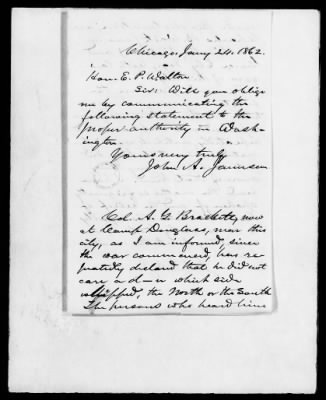 Chicago, Jany 24. 1862.
Hon. E. P. Walton
Sir: Will you oblige
me by communicating the
following statement to the
proper authority in Wash-
ington.
Yours very truly
John A. Jameson
Col. A. G. Brackett, now
at Camp Douglass, near this
city, as I am informed, since
the war commenced, has re-
peatedly declared that he did not
care a d—n which side
whipped, the North or the South
The persons who heard him